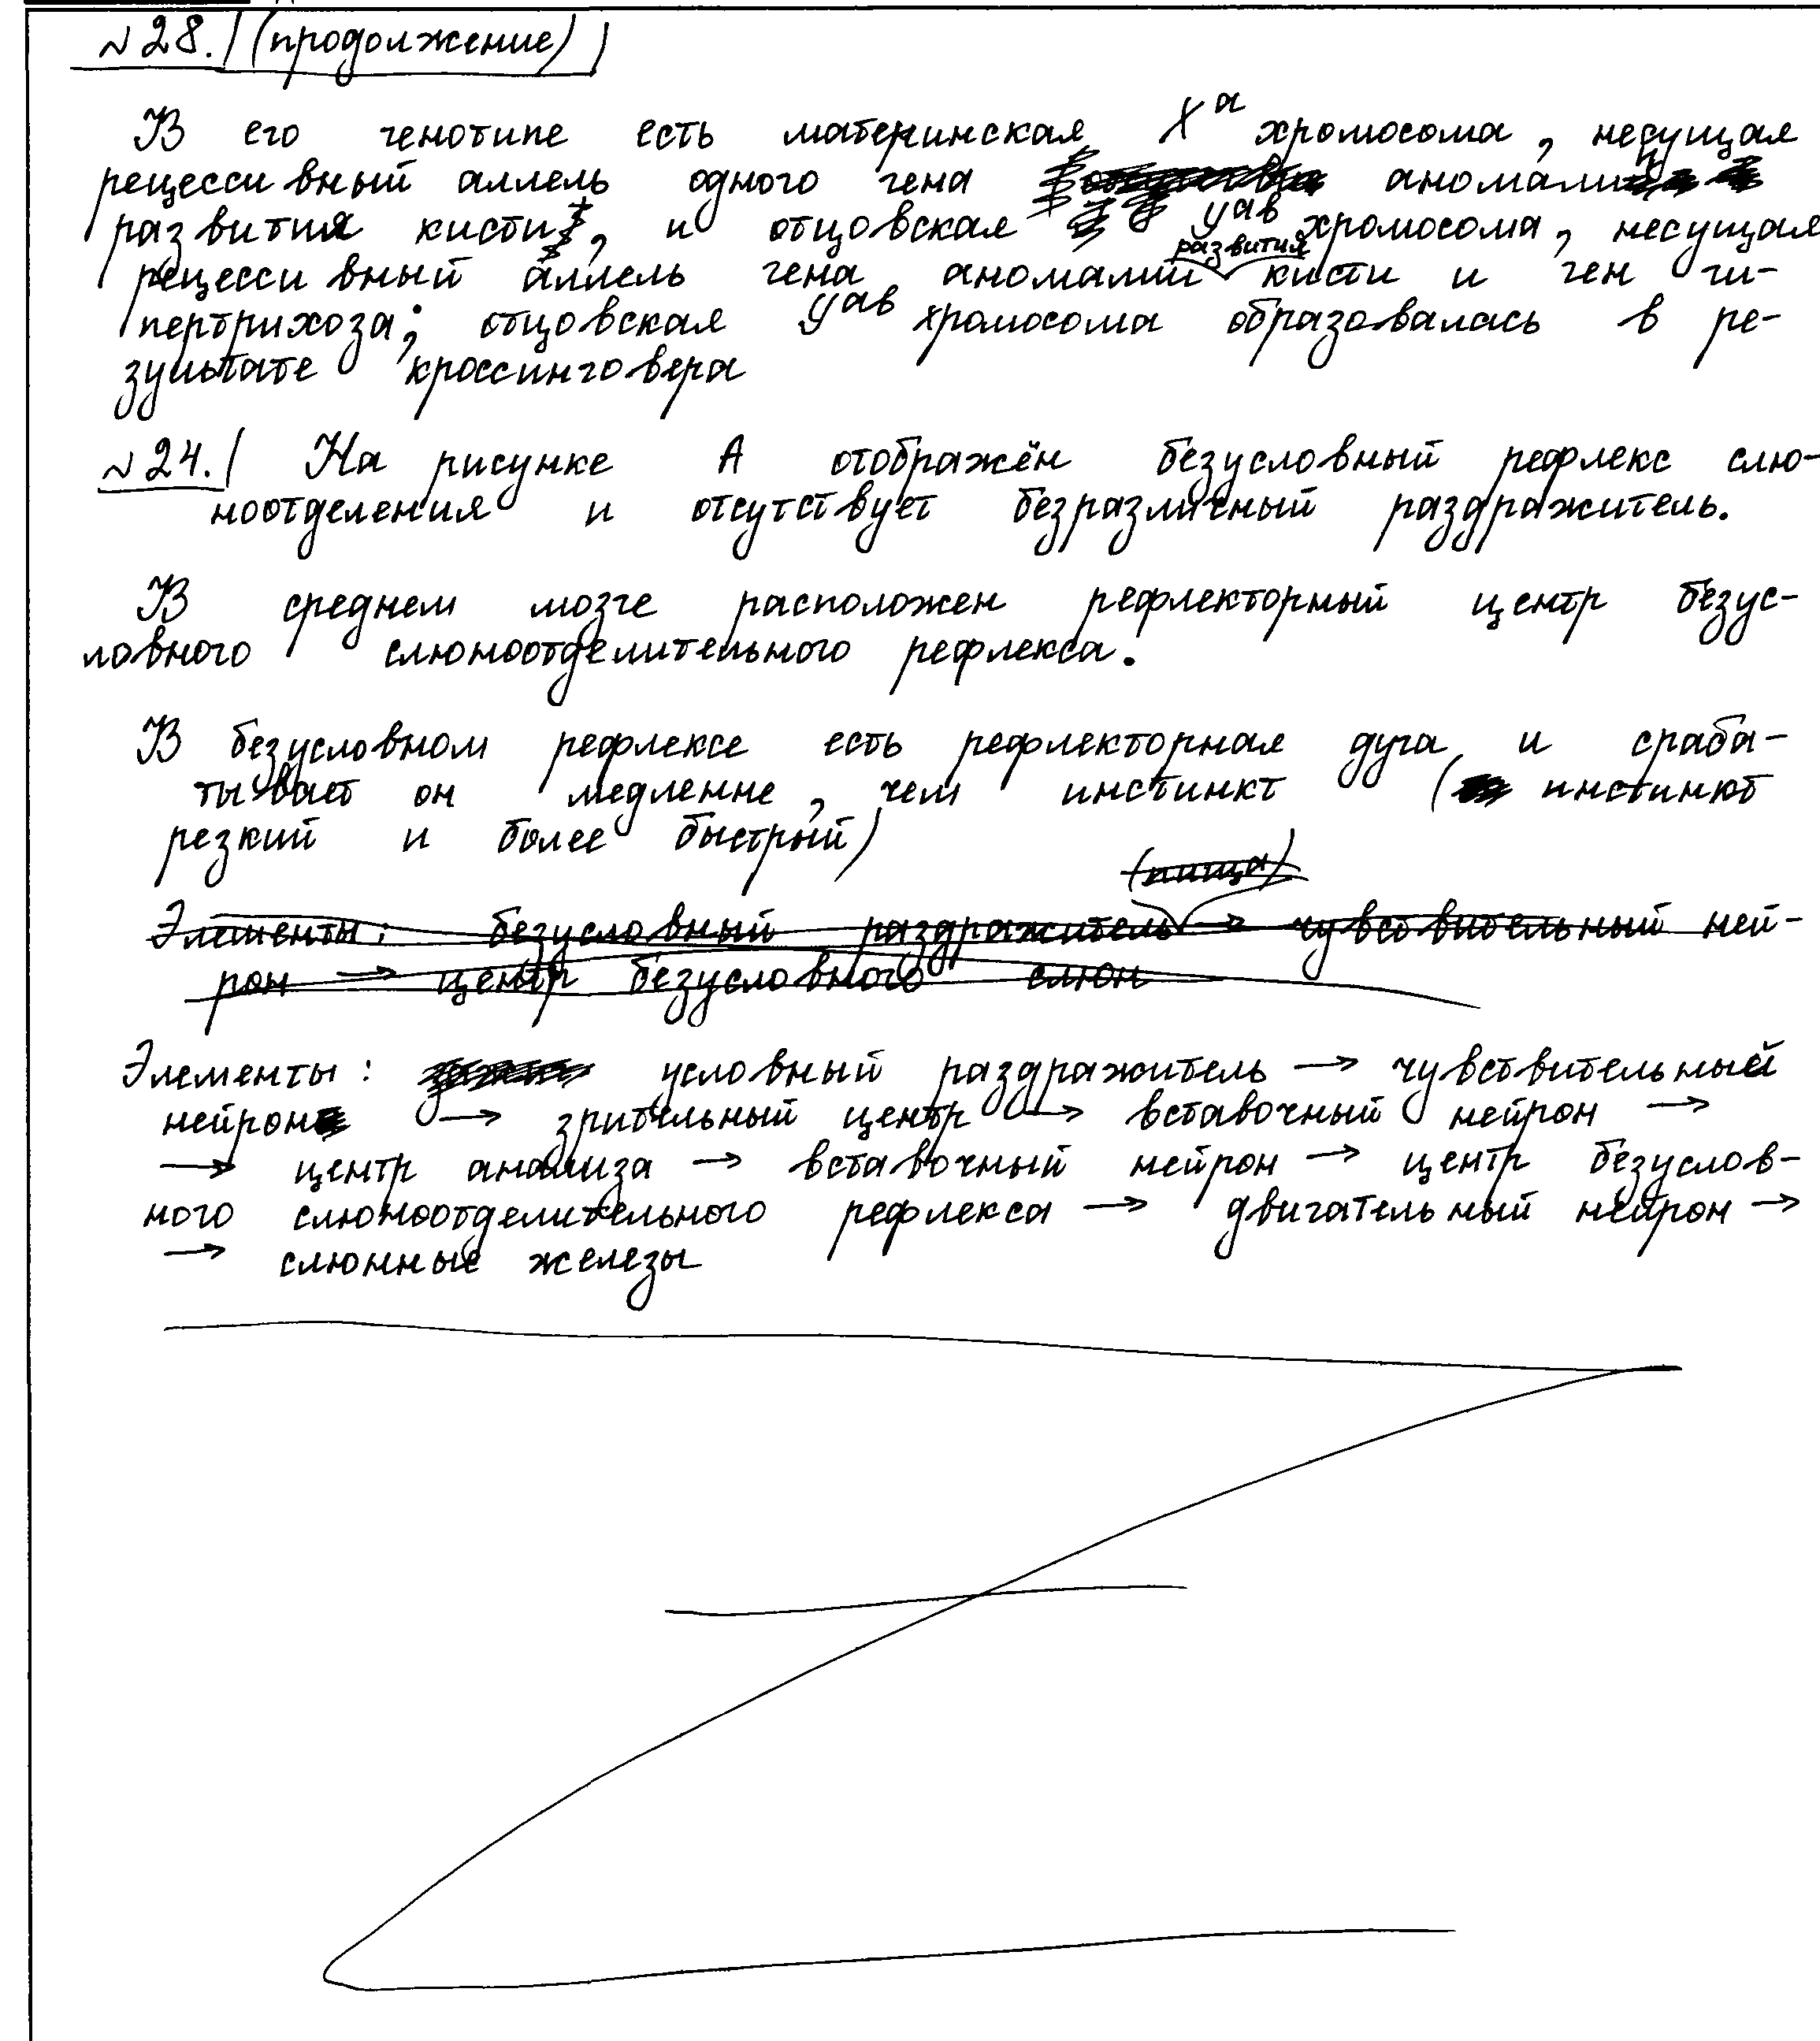 №28. (продолжение)
В его генотипе есть материнская X^а хромосома, несущая
рецессивный аллель одного гена аномалии
развития кисти, и отцовская У^ав хромосома, несущая
рецессивный аллель гена аномалии развития кисти и ген ги-
пертрихоза; отцовская У^ав хромосома образовалась в ре-
зультате кроссинговера
№24. На рисунке А отображён безусловный рефлекс слю-
ноотделения и отсутствует безразличный раздражитель.
В среднем мозге расположен рефлекторный центр безус-
ловного слюноотделительного рефлекса.
В безусловном рефлексе есть рефлекторная дуга и сраба-
тывает он медленне, чем инстинкт ( инстинкт
резкий и более быстрый)
(пища)
Элементы: безусловный раздражитель → чувствительный ней-
рон → центр безусловного слюн
Элементы: условный раздражитель → чувствительный
нейрон → зрительный центр → вставочный нейрон →
→ центр анализа → вставочный нейрон → центр безуслов-
ного слюноотделительного рефлекса → двигательный нейрон →
→ слюнные железы